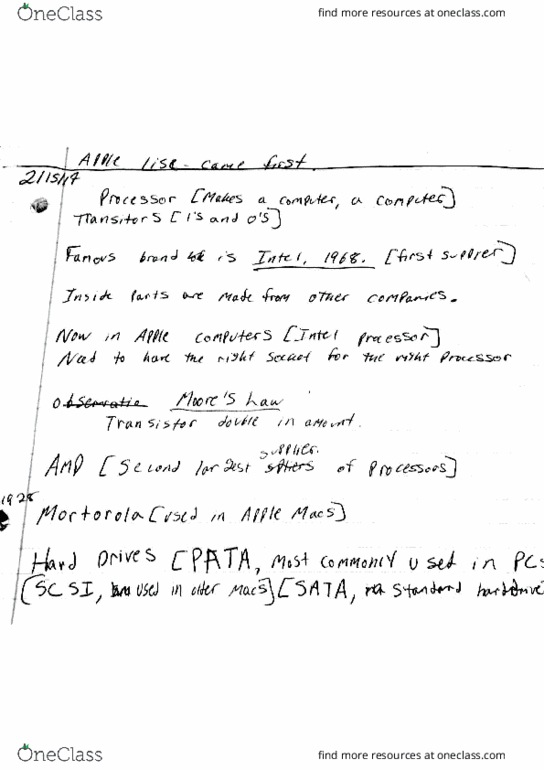 OneClass
find more resources at oneclass.com
Apple Lise - came first.
2/15/17
Processor [Makes a computer, a computer]
Transitors [1's and 0's]
Famous brand is Intel, 1968. [first supplier]
Inside parts are made from other companies.
Now in Apple computers [Intel processor]
Need to have the right socket for the right Processor
Observatio Moore's Law
Transistor double in amount.
supplier.
AMD [Second largest of processors]
1928
Mortorola [used in Apple Macs]
Hard Drives [PATA, most commonly used in PCs
[SCSI, used in older Macs] [SATA, standard harddrive
OneClass
find more resources at oneclass.com